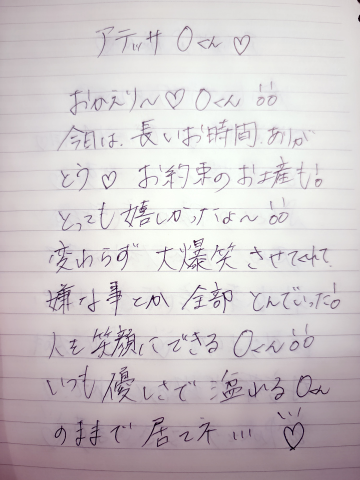 アテッサ Oくん♡
おかえり〜♡ Oくん!!
今日は、長いお時間、ありが
とう♡ お約束のお土産も!
とっても嬉しかったよ〜!!
変わらず 大爆笑 させてくれて
嫌な事とか 全部 とんでいった!
人を笑顔にできる Oくん!!
いつも優しさで 溢れる Oくん
のままで 居てネ...♡